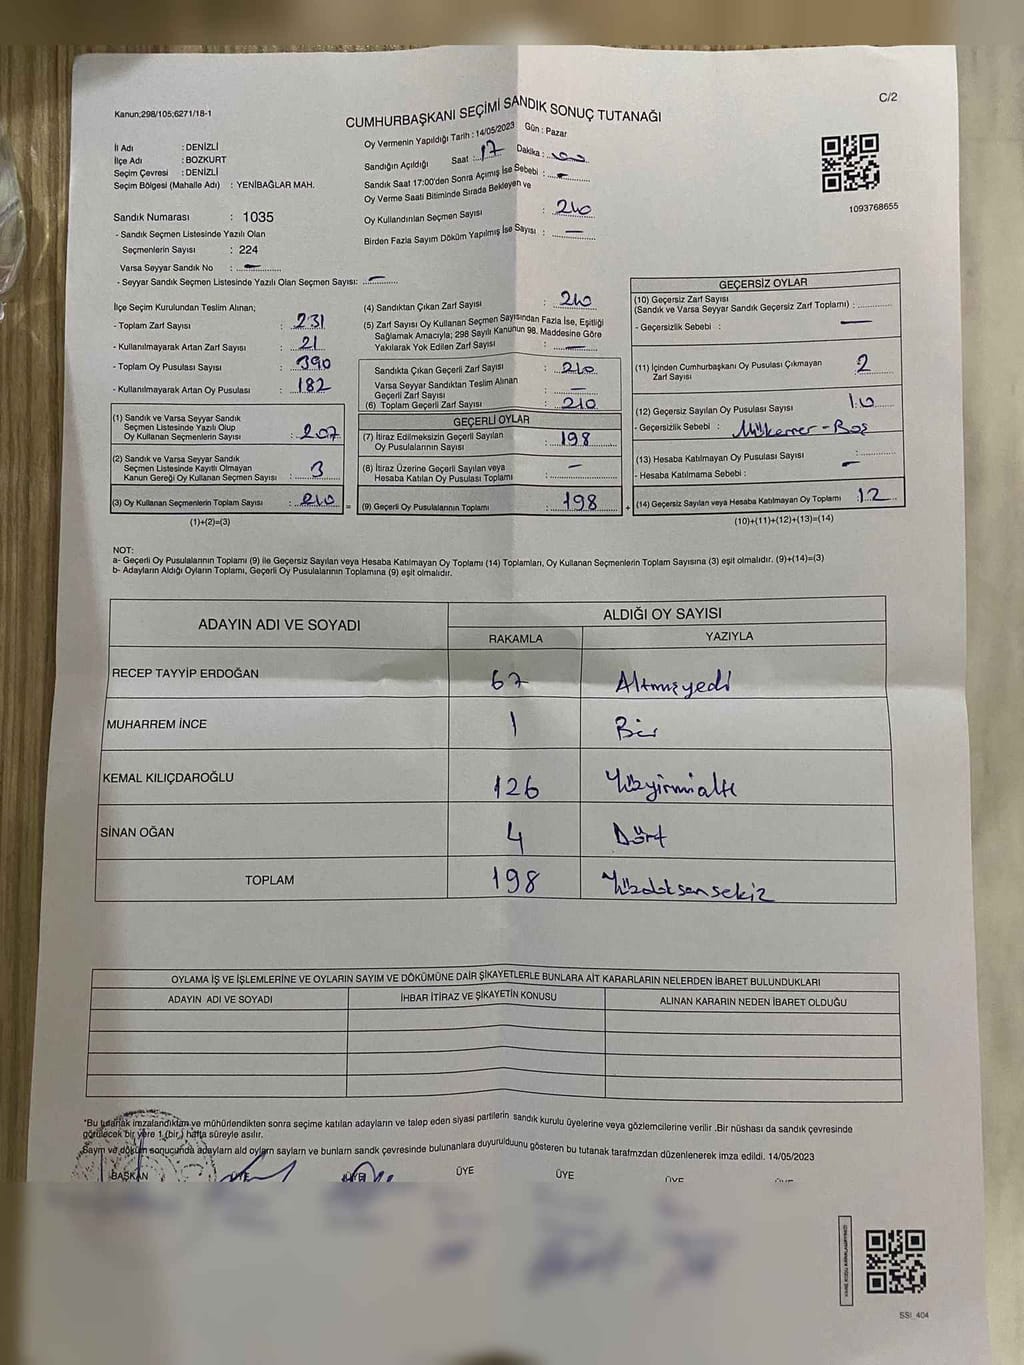 Kanun;298/105;6271/18-1
C/2
CUMHURBAŞKANI SEÇİMİ SANDIK SONUÇ TUTANAĞI
İl Adı : DENİZLİ
İlçe Adı : BOZKURT
Seçim Çevresi : DENİZLİ
Seçim Bölgesi (Mahalle Adı) : YENİBAĞLAR MAH.
Sandık Numarası : 1035
- Sandık Seçmen Listesinde Yazılı Olan
Seçmenlerin Sayısı : 224
Varsa Seyyar Sandık No : —
- Seyyar Sandık Seçmen Listesinde Yazılı Olan Seçmen Sayısı: —
Oy Vermenin Yapıldığı Tarih : 14/05/2023 Gün : Pazar
Sandığın Açıldığı Saat : 17 Dakika :
Sandık Saat 17:00'den Sonra Açımış İse Sebebi : —
Oy Verme Saati Bitiminde Sırada Bekleyen ve
Oy Kullandırılan Seçmen Sayısı : 210
Birden Fazla Sayım Döküm Yapılmış İse Sayısı : —
1093768655
İlçe Seçim Kurulundan Teslim Alınan;
- Toplam Zarf Sayısı : 231
- Kullanılmayarak Artan Zarf Sayısı : 21
- Toplam Oy Pusulası Sayısı : 390
- Kullanılmayarak Artan Oy Pusulası : 182
(1) Sandık ve Varsa Seyyar Sandık
Seçmen Listesinde Yazılı Olup
Oy Kullanan Seçmenlerin Sayısı : 207
(2) Sandık ve Varsa Seyyar Sandık
Seçmen Listesinde Kayıtlı Olmayan
Kanun Gereği Oy Kullanan Seçmen Sayısı : 3
(3) Oy Kullanan Seçmenlerin Toplam Sayısı : 210
(1)+(2)=(3)
(4) Sandıktan Çıkan Zarf Sayısı : 210
(5) Zarf Sayısı Oy Kullanan Seçmen Sayısından Fazla İse, Eşitliği
Sağlamak Amacıyla; 298 Sayılı Kanunun 98. Maddesine Göre
Yakılarak Yok Edilen Zarf Sayısı : —
Sandıkta Çıkan Geçerli Zarf Sayısı : 210
Varsa Seyyar Sandıktan Teslim Alınan
Geçerli Zarf Sayısı : —
(6) Toplam Geçerli Zarf Sayısı : 210
GEÇERLİ OYLAR
(7) İtiraz Edilmeksizin Geçerli Sayılan
Oy Pusulalarının Sayısı : 198
(8) İtiraz Üzerine Geçerli Sayılan veya
Hesaba Katılan Oy Pusulası Toplamı : —
= (9) Geçerli Oy Pusulalarının Toplamı : 198
GEÇERSİZ OYLAR
(10) Geçersiz Zarf Sayısı
(Sandık ve Varsa Seyyar Sandık Geçersiz Zarf Toplamı) :
- Geçersizlik Sebebi : —
(11) İçinden Cumhurbaşkanı Oy Pusulası Çıkmayan
Zarf Sayısı : 2
(12) Geçersiz Sayılan Oy Pusulası Sayısı : 10
- Geçersizlik Sebebi : Mükerrer - Boş
(13) Hesaba Katılmayan Oy Pusulası Sayısı : —
- Hesaba Katılmama Sebebi :
+ (14) Geçersiz Sayılan veya Hesaba Katılmayan Oy Toplamı : 12
(10)+(11)+(12)+(13)=(14)
NOT:
a- Geçerli Oy Pusulalarının Toplamı (9) ile Geçersiz Sayılan veya Hesaba Katılmayan Oy Toplamı (14) Toplamları, Oy Kullanan Seçmenlerin Toplam Sayısına (3) eşit olmalıdır. (9)+(14)=(3)
b- Adayların Aldığı Oyların Toplamı, Geçerli Oy Pusulalarının Toplamına (9) eşit olmalıdır.
ADAYIN ADI VE SOYADI ALDIĞI OY SAYISI
RAKAMLA YAZIYLA
RECEP TAYYİP ERDOĞAN 67 Altmışyedi
MUHARREM İNCE 1 Bir
KEMAL KILIÇDAROĞLU 126 Yüzyirmialtı
SİNAN OĞAN 4 Dört
TOPLAM 198 Yüzdoksansekiz
OYLAMA İŞ VE İŞLEMLERİNE VE OYLARIN SAYIM VE DÖKÜMÜNE DAİR ŞİKAYETLERLE BUNLARA AİT KARARLARIN NELERDEN İBARET BULUNDUKLARI
ADAYIN ADI VE SOYADI İHBAR İTİRAZ VE ŞİKAYETİN KONUSU ALINAN KARARIN NEDEN İBARET OLDUĞU
*Bu tutanak imzalandıktan ve mühürlendikten sonra seçime katılan adayların ve talep eden siyasi partilerin sandık kurulu üyelerine veya gözlemcilerine verilir .Bir nüshası da sandık çevresinde
görülecek bir yere 1 (bir) hafta süreyle asılır.
Sayım ve döküm sonucunda adayların aldı oyların sayları ve bunların sandk çevresinde bulunanlara duyurulduunu gösteren bu tutanak tarafmzdan düzenlenerek imza edildi. 14/05/2023
BAŞKAN ÜYE ÜYE ÜYE ÜYE ÜYE
SSI_404